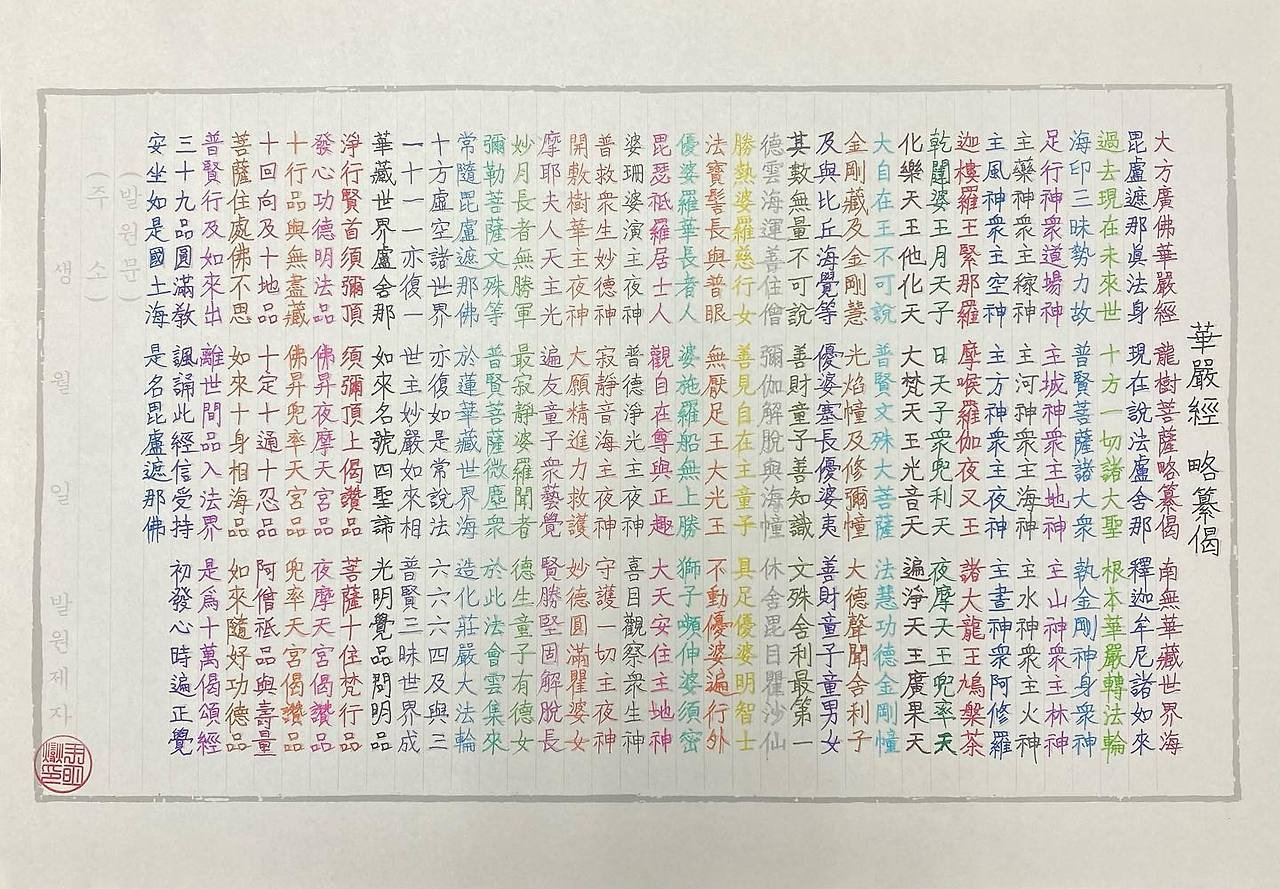 華嚴經 略纂偈
大方廣佛華嚴經 龍樹菩薩略纂偈 南無華藏世界海
毘盧遮那眞法身 現在說法盧舍那 釋迦牟尼諸如來
過去現在未來世 十方一切諸大聖 根本華嚴轉法輪
海印三昧勢力故 普賢菩薩諸大衆 執金剛神身衆神
足行神衆道場神 主城神衆主地神 主山神衆主林神
主藥神衆主稼神 主河神衆主海神 主水神衆主火神
主風神衆主空神 主方神衆主夜神 主晝神衆阿修羅
迦樓羅王緊那羅 摩喉羅伽夜叉王 諸大龍王鳩槃茶
乾闥婆王月天子 日天子衆兜利天 夜摩天王兜率天
化樂天王他化天 大梵天王光音天 遍淨天王廣果天
大自在王不可說 普賢文殊大菩薩 法慧功德金剛幢
金剛藏及金剛慧 光焰幢及修彌幢 大德聲聞舍利子
及與比丘海覺等 優婆塞長優婆夷 善財童子童男女
其數無量不可說 善財童子善知識 文殊舍利最第一
德雲海運善住僧 彌伽解脫與海幢 休舍毘目瞿沙仙
勝熱婆羅慈行女 善見自在主童子 具足優婆明智士
法寶髻長與普眼 無厭足王大光王 不動優婆遍行外
優婆羅華長者人 婆施羅船無上勝 獅子嚬伸婆須密
毘瑟祗羅居士人 觀自在尊與正趣 大天安住主地神
婆珊婆演主夜神 普德淨光主夜神 喜目觀察衆生神
普救衆生妙德神 寂靜音海主夜神 守護一切主夜神
開敷樹華主夜神 大願精進力救護 妙德圓滿瞿婆女
摩耶夫人天主光 遍友童子衆藝覺 賢勝堅固解脫長
妙月長者無勝軍 最寂靜婆羅聞者 德生童子有德女
彌勒菩薩文殊等 普賢菩薩微塵衆 於此法會雲集來
常隨毘盧遮那佛 於蓮華藏世界海 造化莊嚴大法輪
十方虛空諸世界 亦復如是常說法 六六六四及與三
一十一一亦復一 世主妙嚴如來相 普賢三昧世界成
華藏世界盧舍那 如來名號四聖諦 光明覺品問明品
淨行賢首須彌頂 須彌頂上偈讚品 菩薩十住梵行品
發心功德明法品 佛昇夜摩天宮品 夜摩天宮偈讚品
十行品與無盡藏 佛昇兜率天宮品 兜率天宮偈讚品
十回向及十地品 十定十通十忍品 阿僧祇品與壽量
菩薩住處佛不思 如來十身相海品 如來隨好功德品
普賢行及如來出 離世間品入法界 是爲十萬偈頌經
三十九品圓滿教 諷誦此經信受持 初發心時遍正覺
安坐如是國土海 是名毘盧遮那佛
(발원문)
(주 소)
생 월 일 발원제자